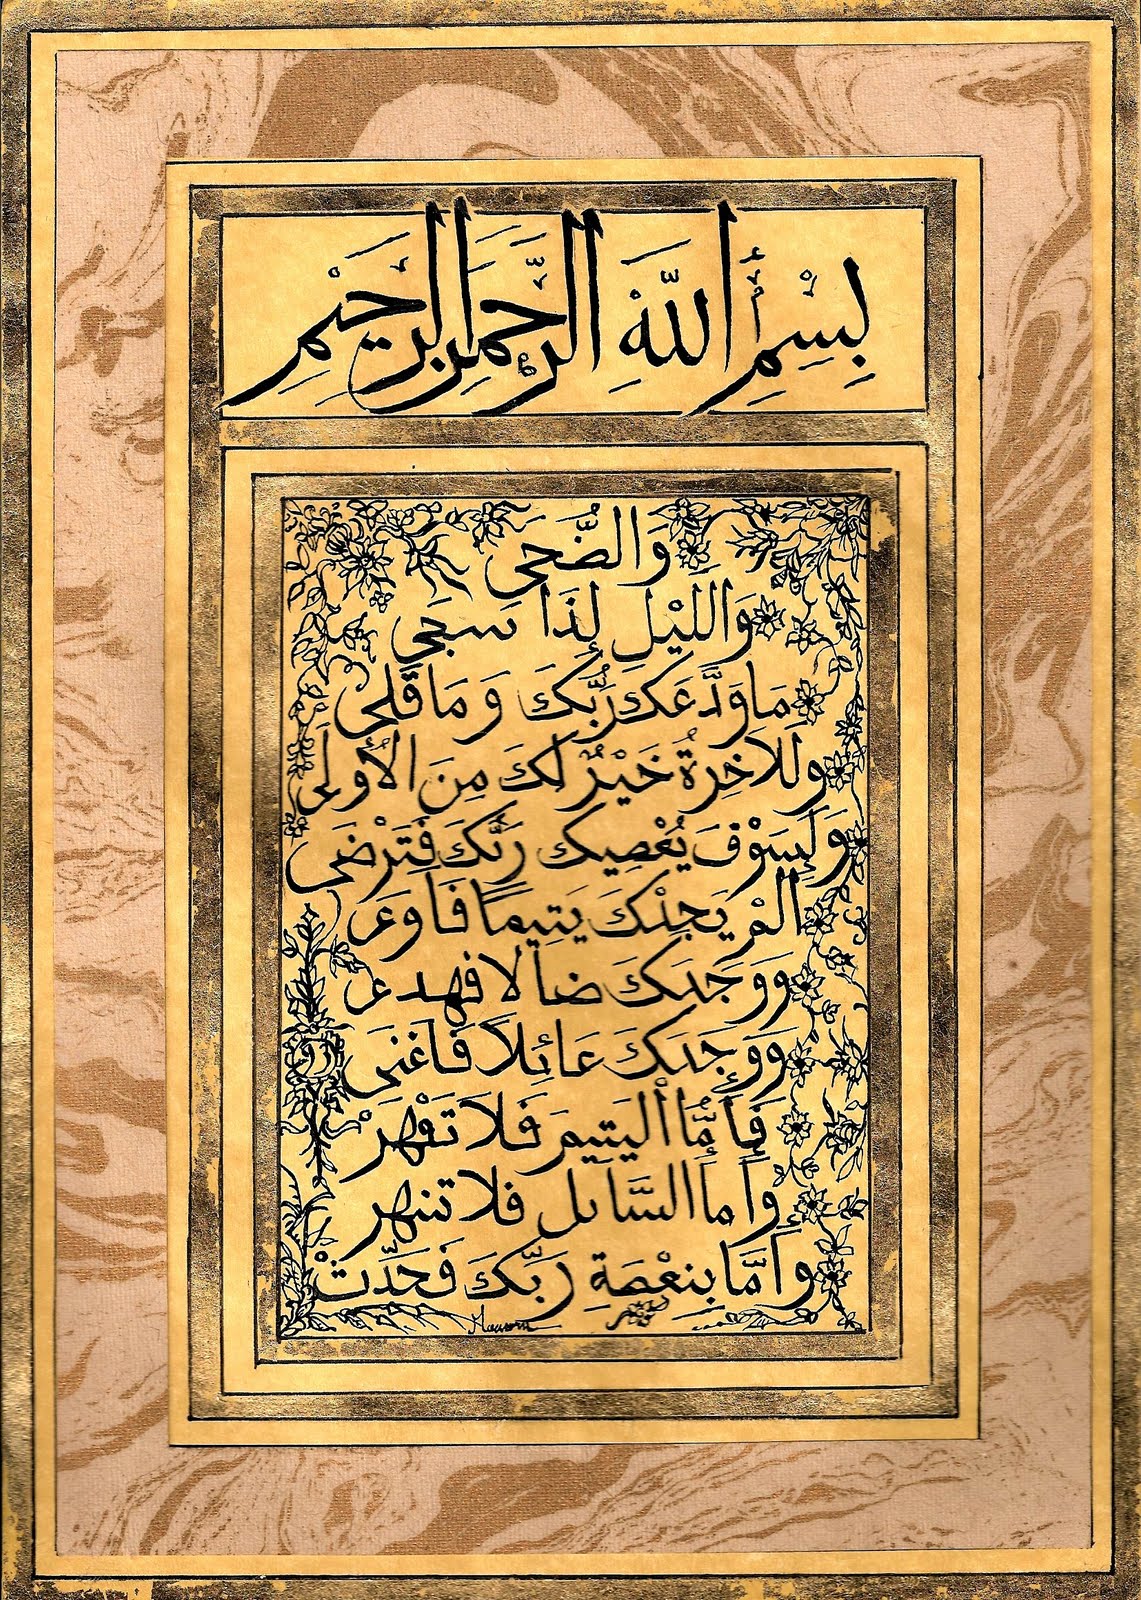 بِسْمِ اللّٰهِ الرَّحْمَنِ الرَّحِيْمِ
وَالضُّحَى
وَاللَّيْلِ إِذَا سَجَى
مَا وَدَّعَكَ رَبُّكَ وَ مَا قَلَى
وللاخِرةُ خَيْرٌ لكَ مِنَ الأُولَى
وَلَسَوْفَ يُعْطِيكَ رَبُّكَ فَتَرْضَى
المْ يَجِدْكَ يَتِيمًا فَاوى
ووَجَدَكَ ضالا فهدى
ووَجَدكَ عَائِلاً فَاغنَى
فَأَمَّا اليَتِيمَ فَلا تَقْهرْ
وَأَما السَّايل فلا تنهر
وأَمَّا بِنِعْمَةِ رَبِّكَ فَحَدِّثْ